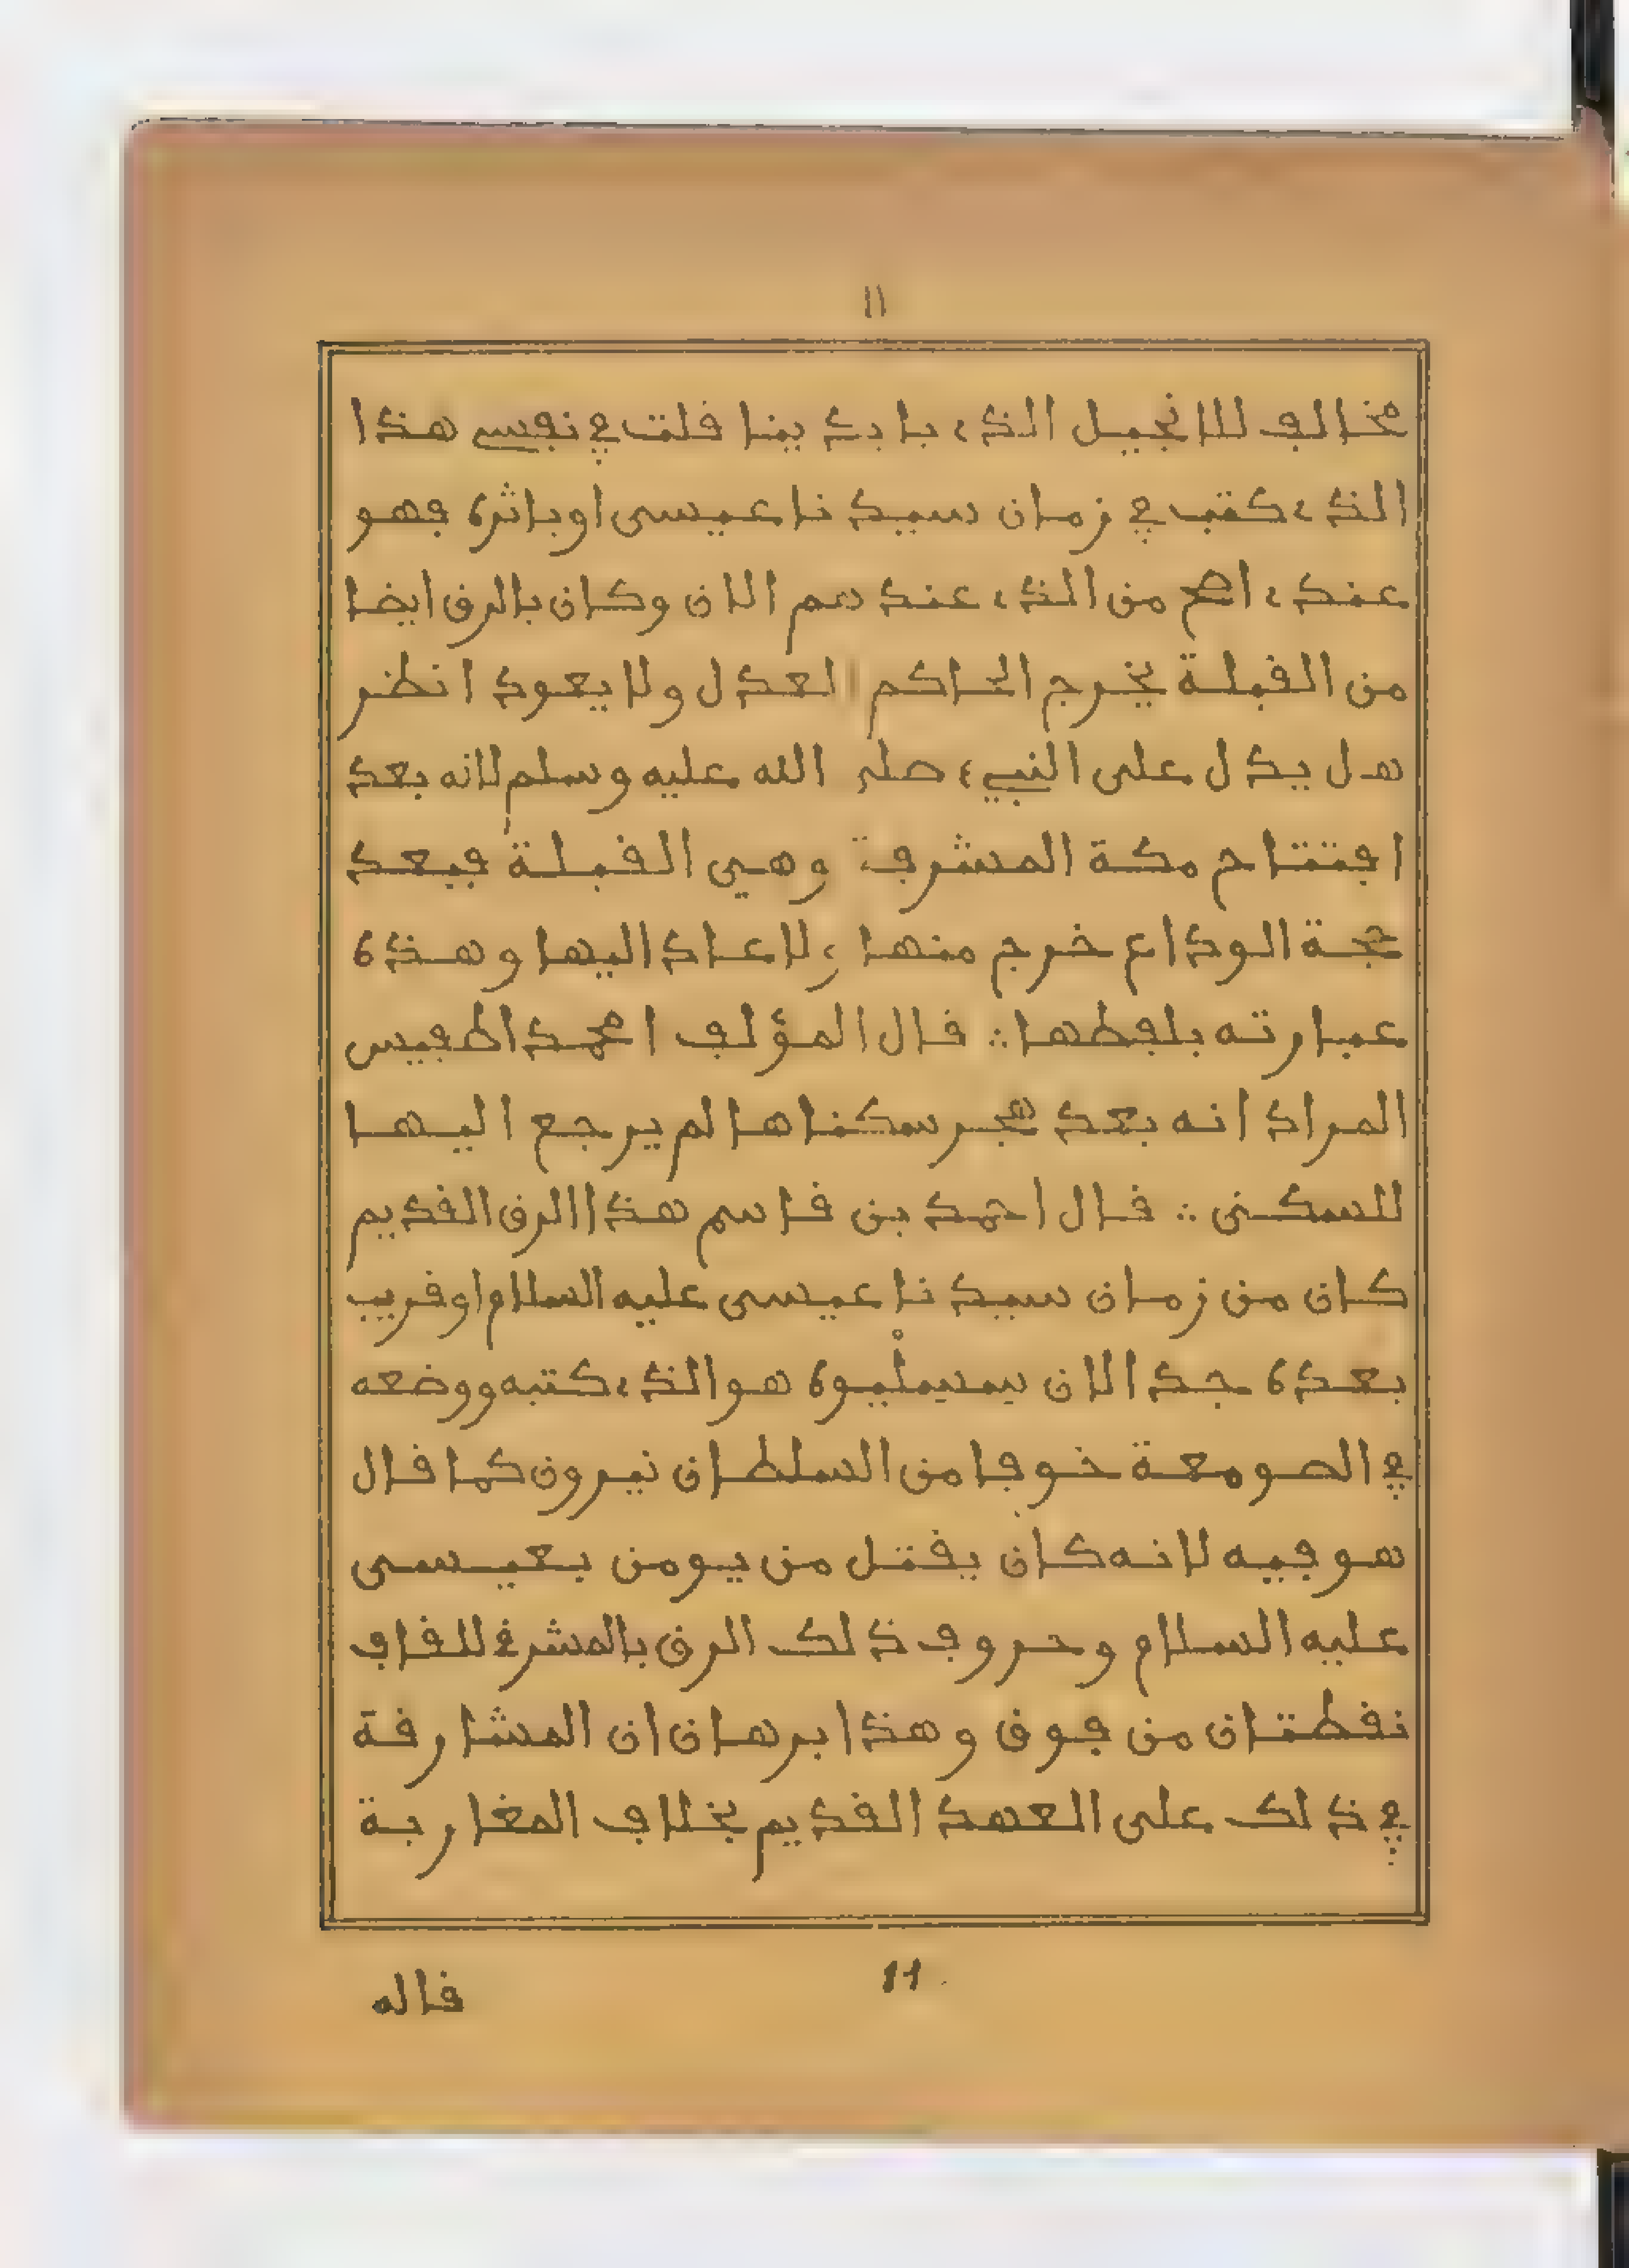 ١١
مخالف للانجيل الذي بايدينا قلت في نفسي هذا
الذي كتب في زمان سيدنا عيسى او باثره فهو
عندي اصح من الذي عندهم الان وكان بالرق ايضا
من القبلة يخرج الحاكم العدل ولا يعود انظر
هل يدل على النبيء صلى الله عليه وسلم لانه بعد
افتتاح مكة المشرفة وهي القبلة فبعد
حجة الوداع خرج منها ولا عاد اليها وهذه
عبارته بلفظها ∴ قال المؤلف امحمد اطفيش
المراد انه بعد هجر سكناها لم يرجع اليها
للسكنى ∴ قال احمد بن قاسم هذا الرق القديم
كان من زمان سيدنا عيسى عليه السلام او قريب
بعده جد الان هو الذي كتبه ووضعه
في الصومعة خوفا من السلطان نيرون كما قال
هو فيه لانه كان يقتل من يومن بعيسى
عليه السلام وحروف ذلك الرق بالمشرقي للقاف
نقطتان من فوق وهذا برهان ان المشارقة
في ذلك على العهد القديم بخلاف المغاربة
11
قاله